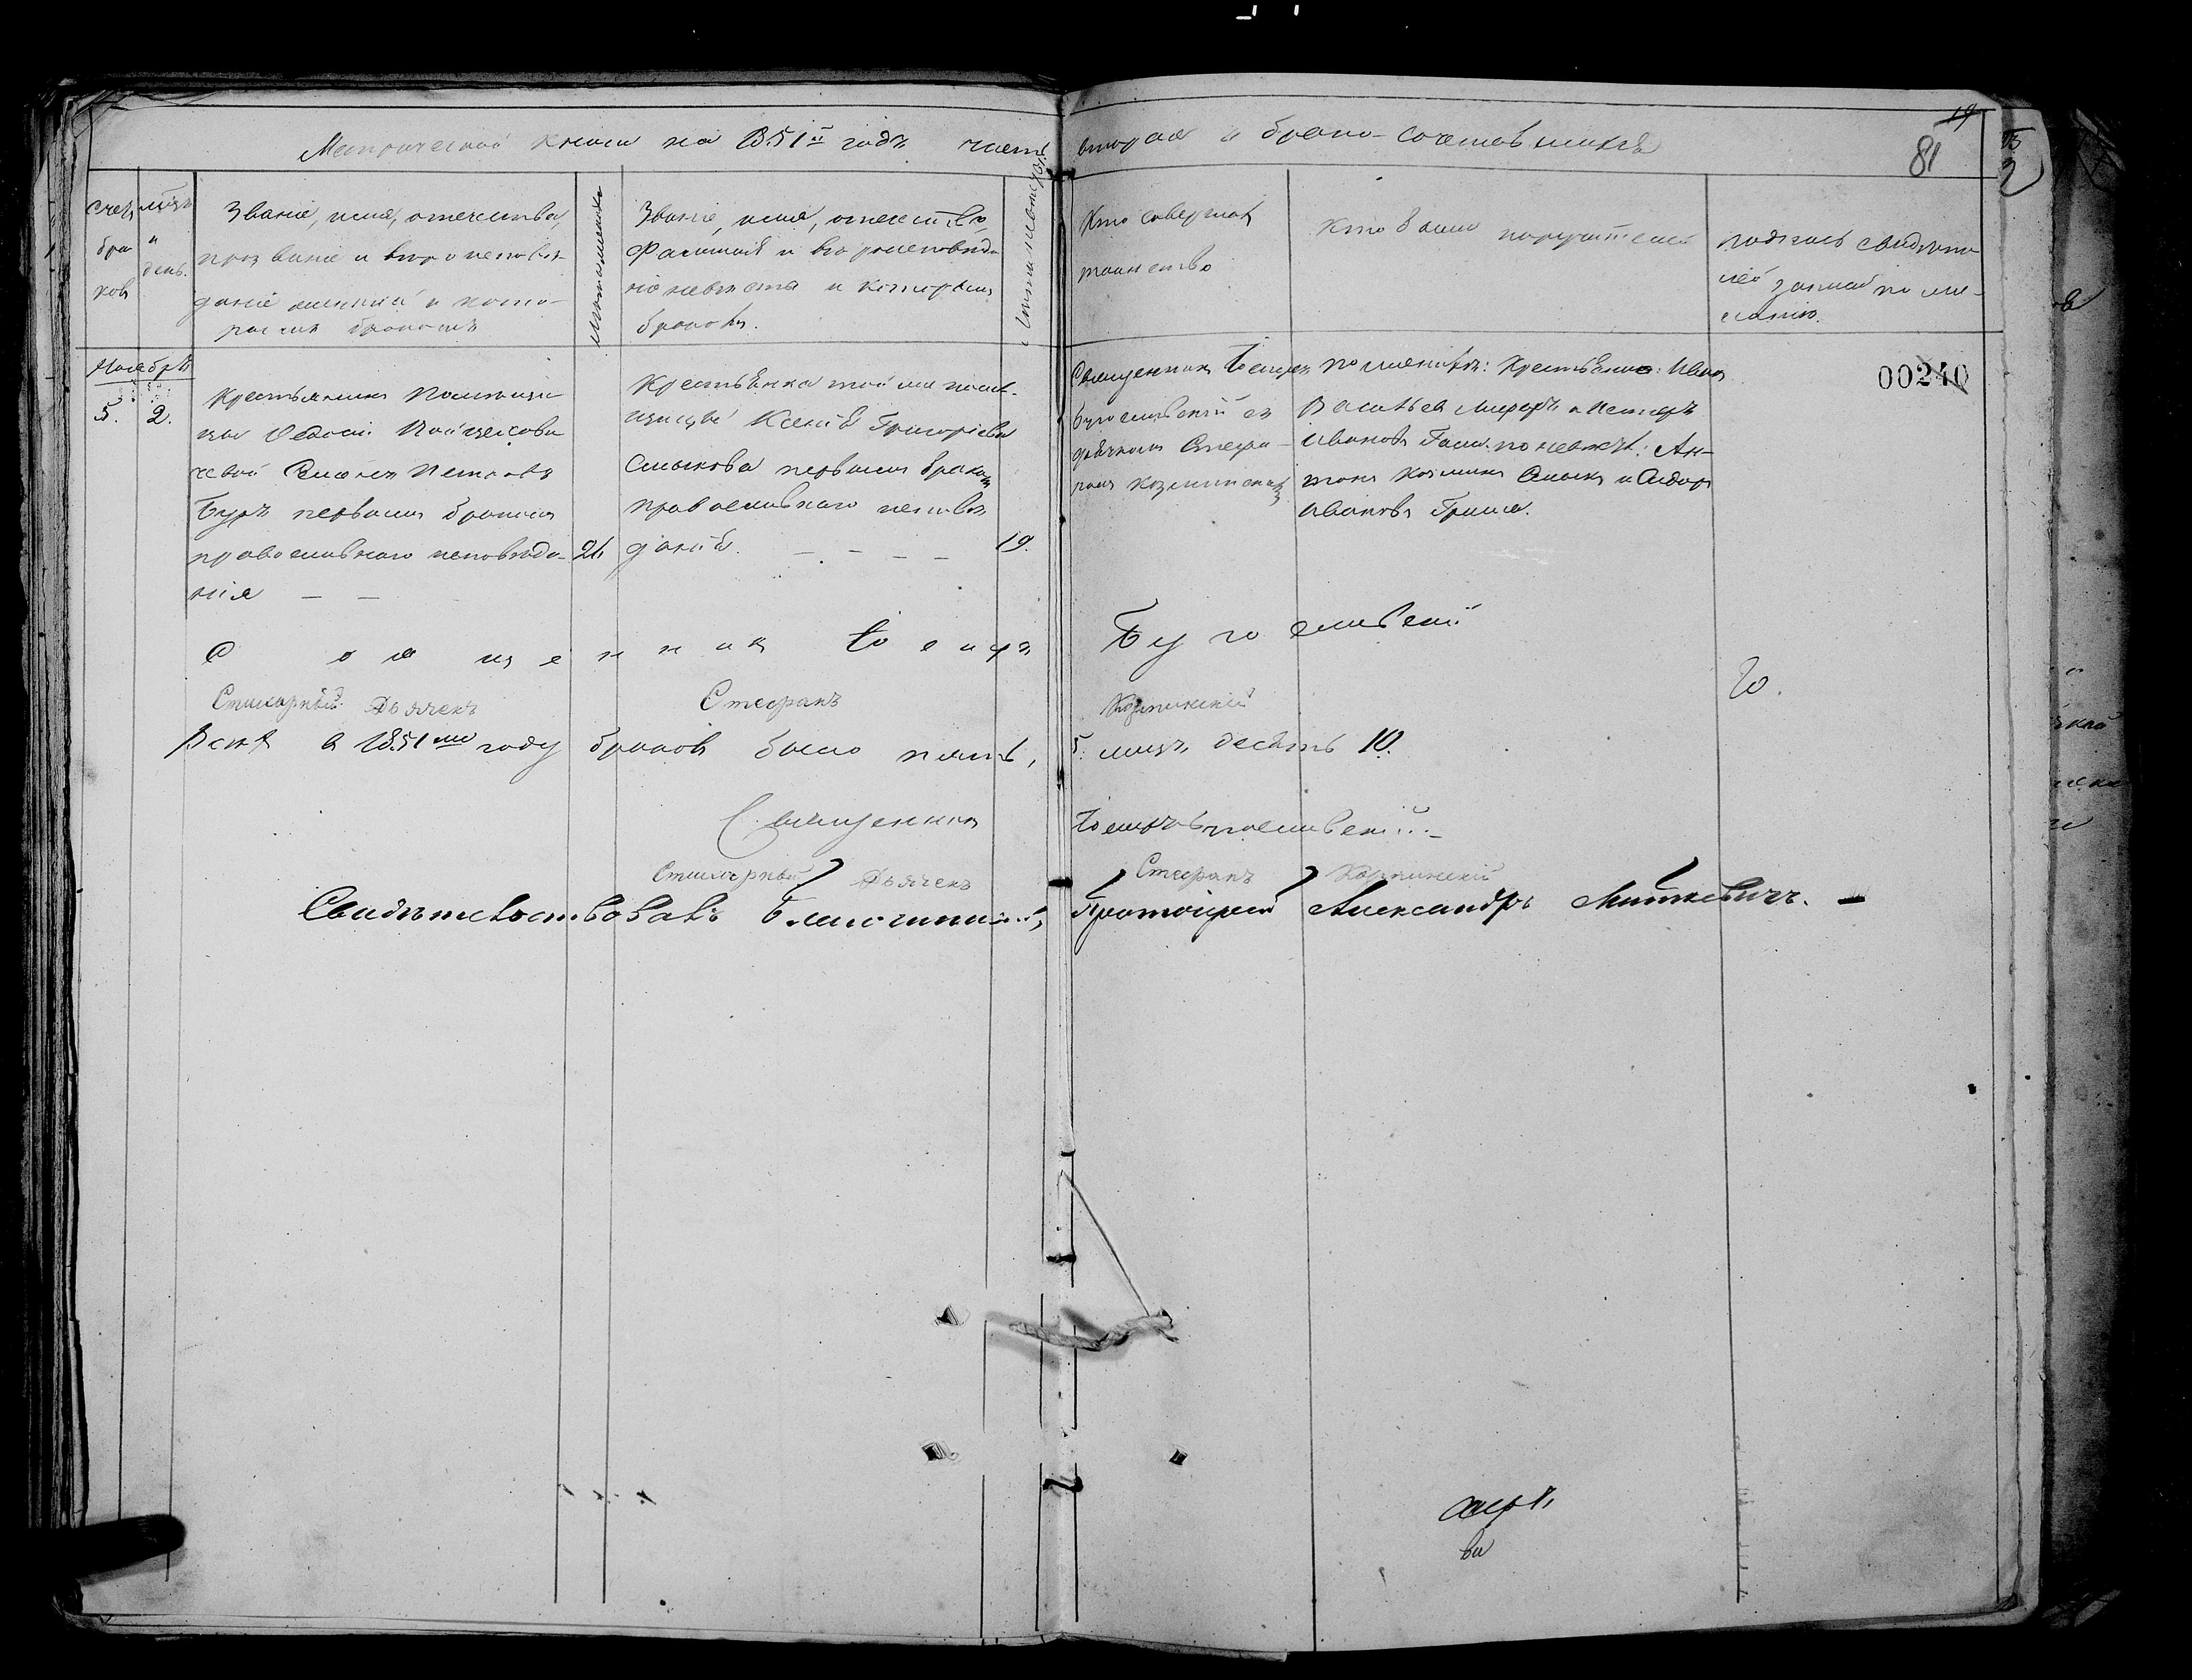 Метрической книги на 1851й годъ часть вторая о брако-сочетавшихся
19
81
Счетъ браковъ
мцъ и день.
Званіе, имя, отечество,
прозваніе и вероисповѣ-
даніе жениха и кото-
рымъ бракомъ
Лета жениха
Званіе, имя, отечество,
фамилія и вѣроисповѣда
ніе невѣсты и которымъ
бракомъ.
Лета невесты
Кто совершалъ
таинство
Кто были поручители
подпись свидѣте
лей записи по же-
ланію.
Ноябрь
5. 2.
Крестьянинъ Помѣщи
цы Ѳедосіи Войцехови
чевой Петровъ
Буръ первымъ бракомъ
православнаго исповѣда-
нія — —
21
Крестьянка той же поме-
щицы Ксенія Григорієва
Смыкова первымъ бракомъ
православнаго исповѣ
данія. — — — —
19.
Священникъ Іосифъ
Бугославскій съ
дьячкомъ Стефа-
номъ
по женихѣ: Крестьяне: Иванъ
Васильевъ и Петръ
Ивановъ по невестѣ: Ан-
тонъ Козминъ Смыкъ и Сидоръ
Ивановъ Гриша.
00240
Священникъ Іосифъ Бугославскій
Стихарный Дьячекъ Стефанъ
Всѣхъ въ 1851мъ году браковъ было пять, 5. лицъ десять 10.
Священникъ Іосифъ Бугославскій
Стихарный Дьячекъ Стефанъ
Свидѣтельствовалъ Благочинный, Протоіерей Александръ Миткевичъ. —